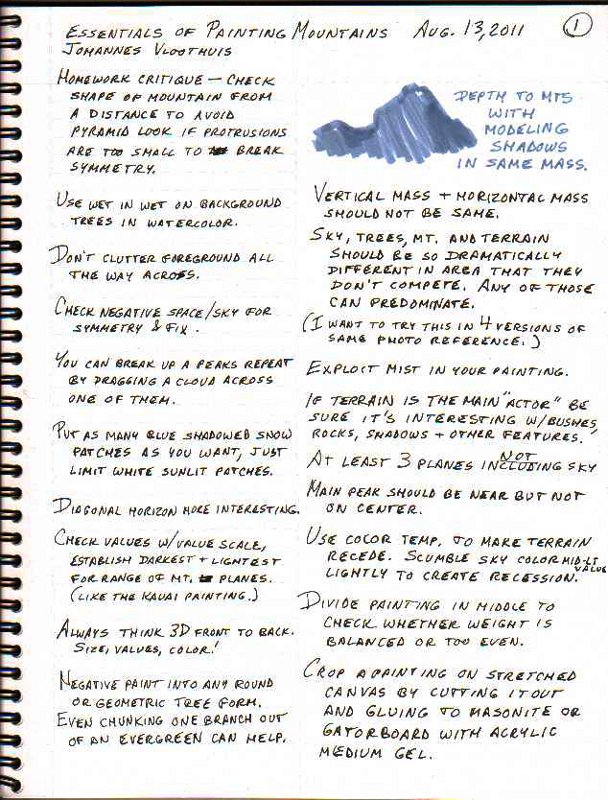 ESSENTIALS OF PAINTING MOUNTAINS AUG. 13, 2011 1
JOHANNES VLOOTHUIS
HOMEWORK CRITIQUE — CHECK
SHAPE OF MOUNTAIN FROM
A DISTANCE TO AVOID
PYRAMID LOOK IF PROTRUSIONS
ARE TOO SMALL TO BREAK
SYMMETRY.
USE WET IN WET ON BACKGROUND
TREES IN WATERCOLOR.
DON'T CLUTTER FOREGROUND ALL
THE WAY ACROSS.
CHECK NEGATIVE SPACE/SKY FOR
SYMMETRY & FIX.
YOU CAN BREAK UP A PEAKS REPEAT
BY DRAGGING A CLOUD ACROSS
ONE OF THEM.
PUT AS MANY BLUE SHADOWED SNOW
PATCHES AS YOU WANT, JUST
LIMIT WHITE SUNLIT PATCHES.
DIAGONAL HORIZON MORE INTERESTING.
CHECK VALUES W/VALUE SCALE,
ESTABLISH DARKEST + LIGHTEST
FOR RANGE OF MT. PLANES.
(LIKE THE KAUAI PAINTING.)
ALWAYS THINK 3D FRONT TO BACK.
SIZE, VALUES, COLOR!
NEGATIVE PAINT INTO ANY ROUND
OR GEOMETRIC TREE FORM.
EVEN CHUNKING ONE BRANCH OUT
OF AN EVERGREEN CAN HELP.
DEPTH TO MTS
WITH
MODELING
SHADOWS
IN SAME MASS.
VERTICAL MASS + HORIZONTAL MASS
SHOULD NOT BE SAME.
SKY, TREES, MT. AND TERRAIN
SHOULD BE SO DRAMATICALLY
DIFFERENT IN AREA THAT THEY
DON'T COMPETE. ANY OF THOSE
CAN PREDOMINATE.
(I WANT TO TRY THIS IN 4 VERSIONS OF
SAME PHOTO REFERENCE.)
EXPLOIT MIST IN YOUR PAINTING.
IF TERRAIN IS THE MAIN "ACTOR" BE
SURE IT'S INTERESTING W/BUSHES,
ROCKS, SHADOWS + OTHER FEATURES.
AT LEAST 3 PLANES NOT INCLUDING SKY
MAIN PEAK SHOULD BE NEAR BUT NOT
ON CENTER.
USE COLOR TEMP. TO MAKE TERRAIN
RECEDE. SCUMBLE SKY COLOR MID-LT VALUE
LIGHTLY TO CREATE RECESSION.
DIVIDE PAINTING IN MIDDLE TO
CHECK WHETHER WEIGHT IS
BALANCED OR TOO EVEN.
CROP A PAINTING ON STRETCHED
CANVAS BY CUTTING IT OUT
AND GLUING TO MASONITE OR
GATORBOARD WITH ACRYLIC
MEDIUM GEL.